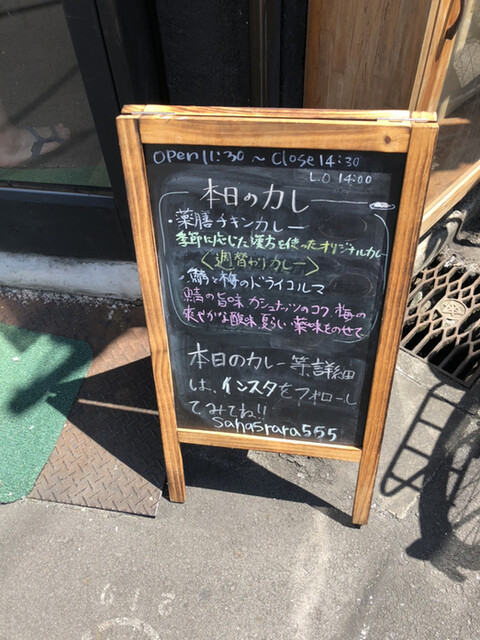 open 11:30 ~ close 14:30
L.O 14:00
本日のカレー
・薬膳チキンカレー
季節に応じた漢方を使ったオリジナルカレー
<週替わりカレー>
・鯖と梅のドライコルマ
鯖の旨味 カシュナッツのコク 梅の
爽やかな酸味 夏らしい薬味をのせて
本日のカレー等、詳細
は、インスタをフォローし
てみてね!!
sahasrara555